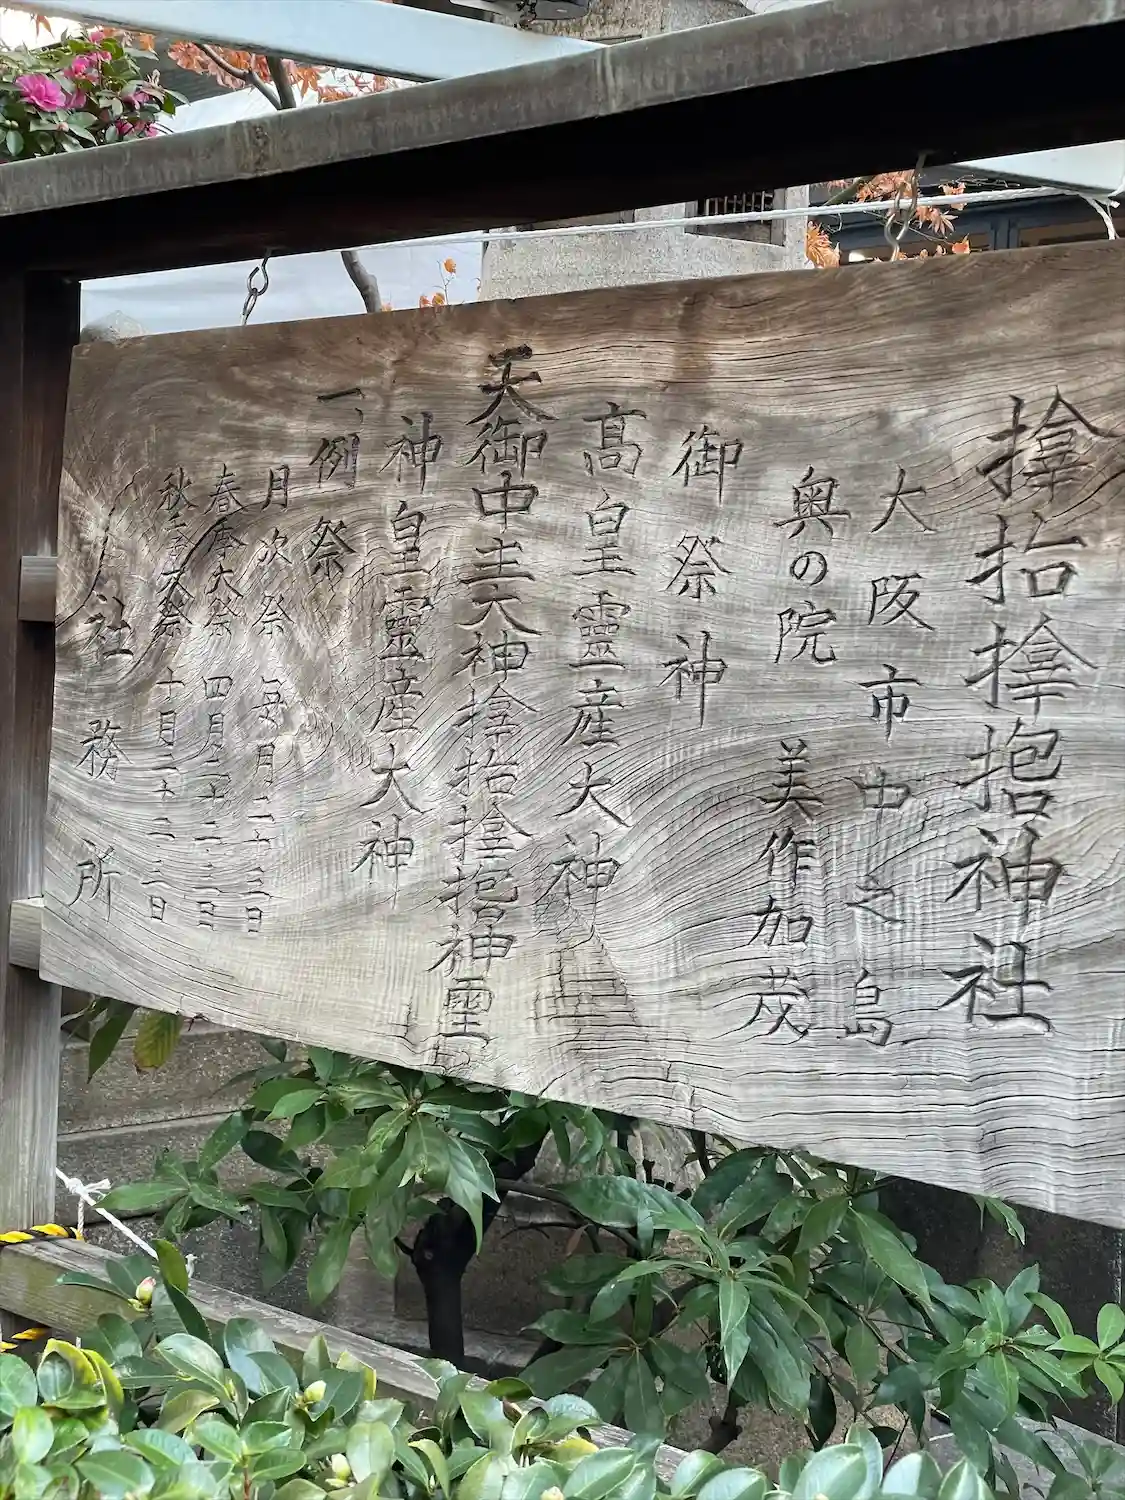 𪮷抬𪮷𪮇神社
大阪市中之島
奥の院 美作加茂
御祭神
髙皇靈産大神
天御中主大神𪮷抬𪮷𪮇神霊
神皇靈産大神
一、例祭
月次祭 毎月二十三日
春季大祭 四月二十二三日
秋季大祭 十月二十二三日
社務所